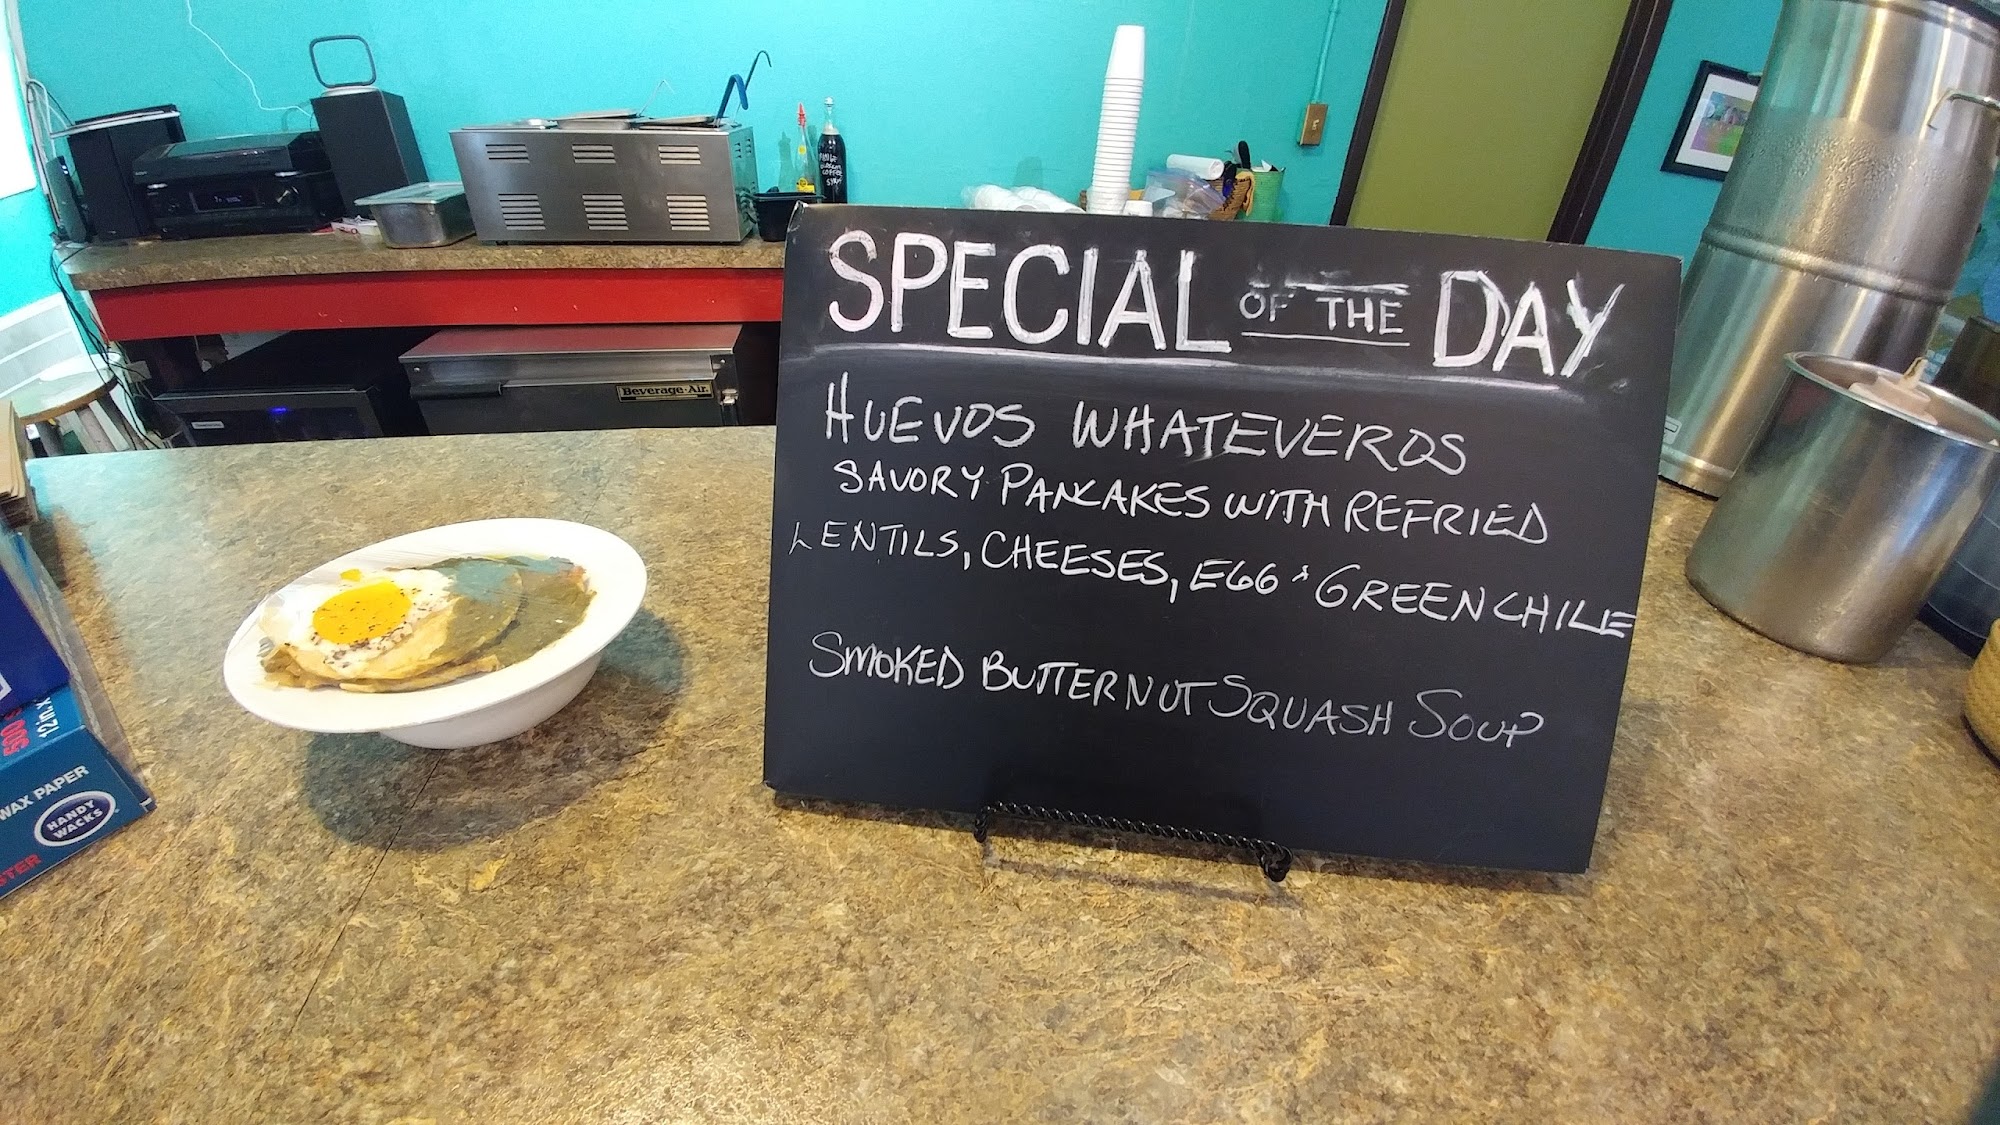 SPECIAL OF THE DAY
HUEVOS WHATEVEROS
SAVORY PANCAKES WITH REFRIED
LENTILS, CHEESES, EGG & GREEN CHILE
SMOKED BUTTERNUT SQUASH SOUP
Beverage-Air
COFFEE
500
12 in. x
WAX PAPER
HANDY
WACKS